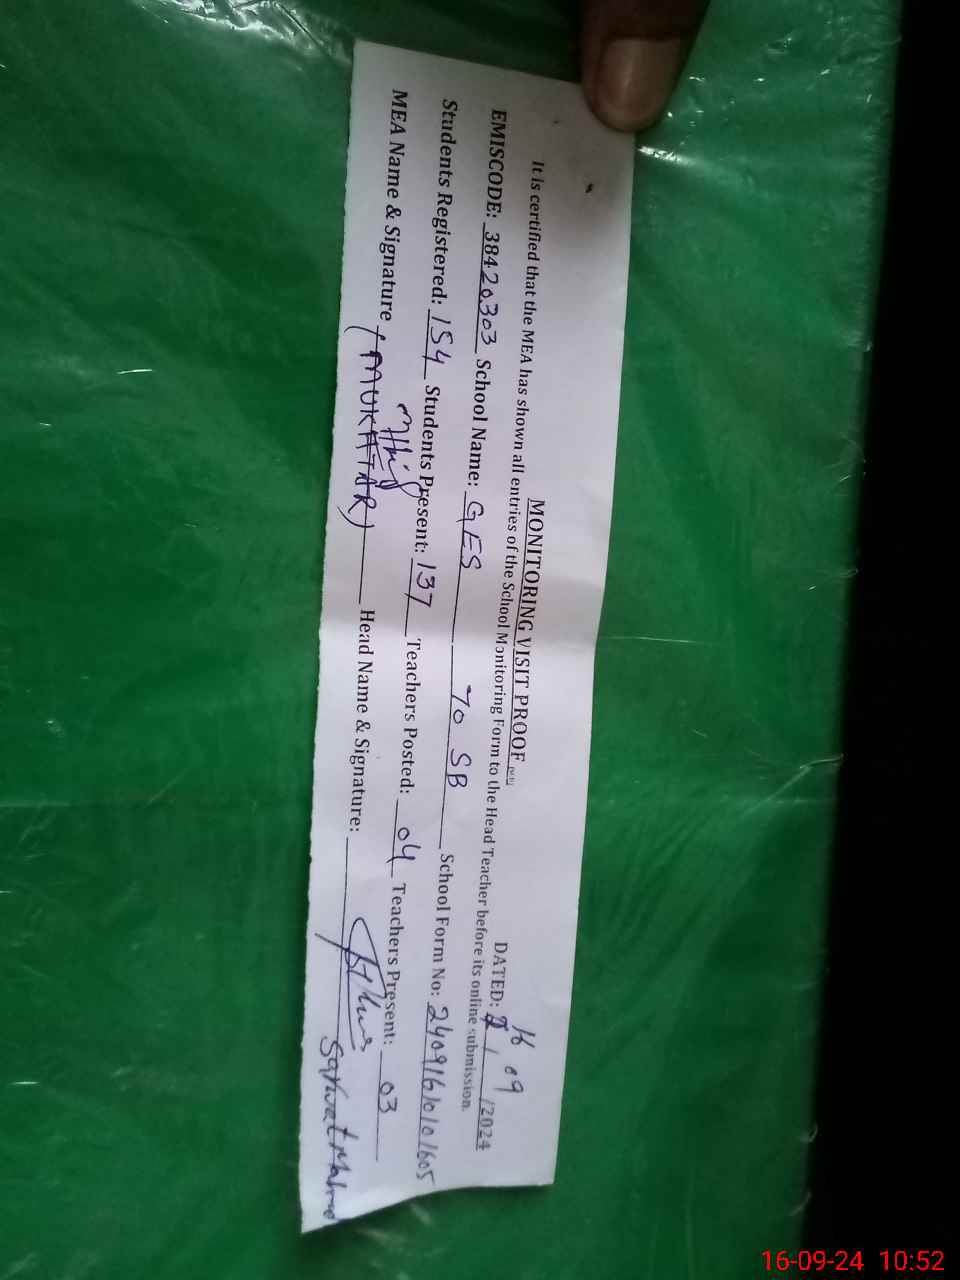 MONITORING VISIT PROOF
DATED: 16 09 /2024
It is certified that the MEA has shown all entries of the School Monitoring Form to the Head Teacher before its online submission.
EMISCODE: 38420303 School Name: GES 70 SB School Form No: 24091610101605
Students Registered: 154 Students Present: 137 Teachers Posted: 04 Teachers Present: 03
MEA Name & Signature (MUKHTAR) Head Name & Signature: Sarwat
16-09-24 10:52